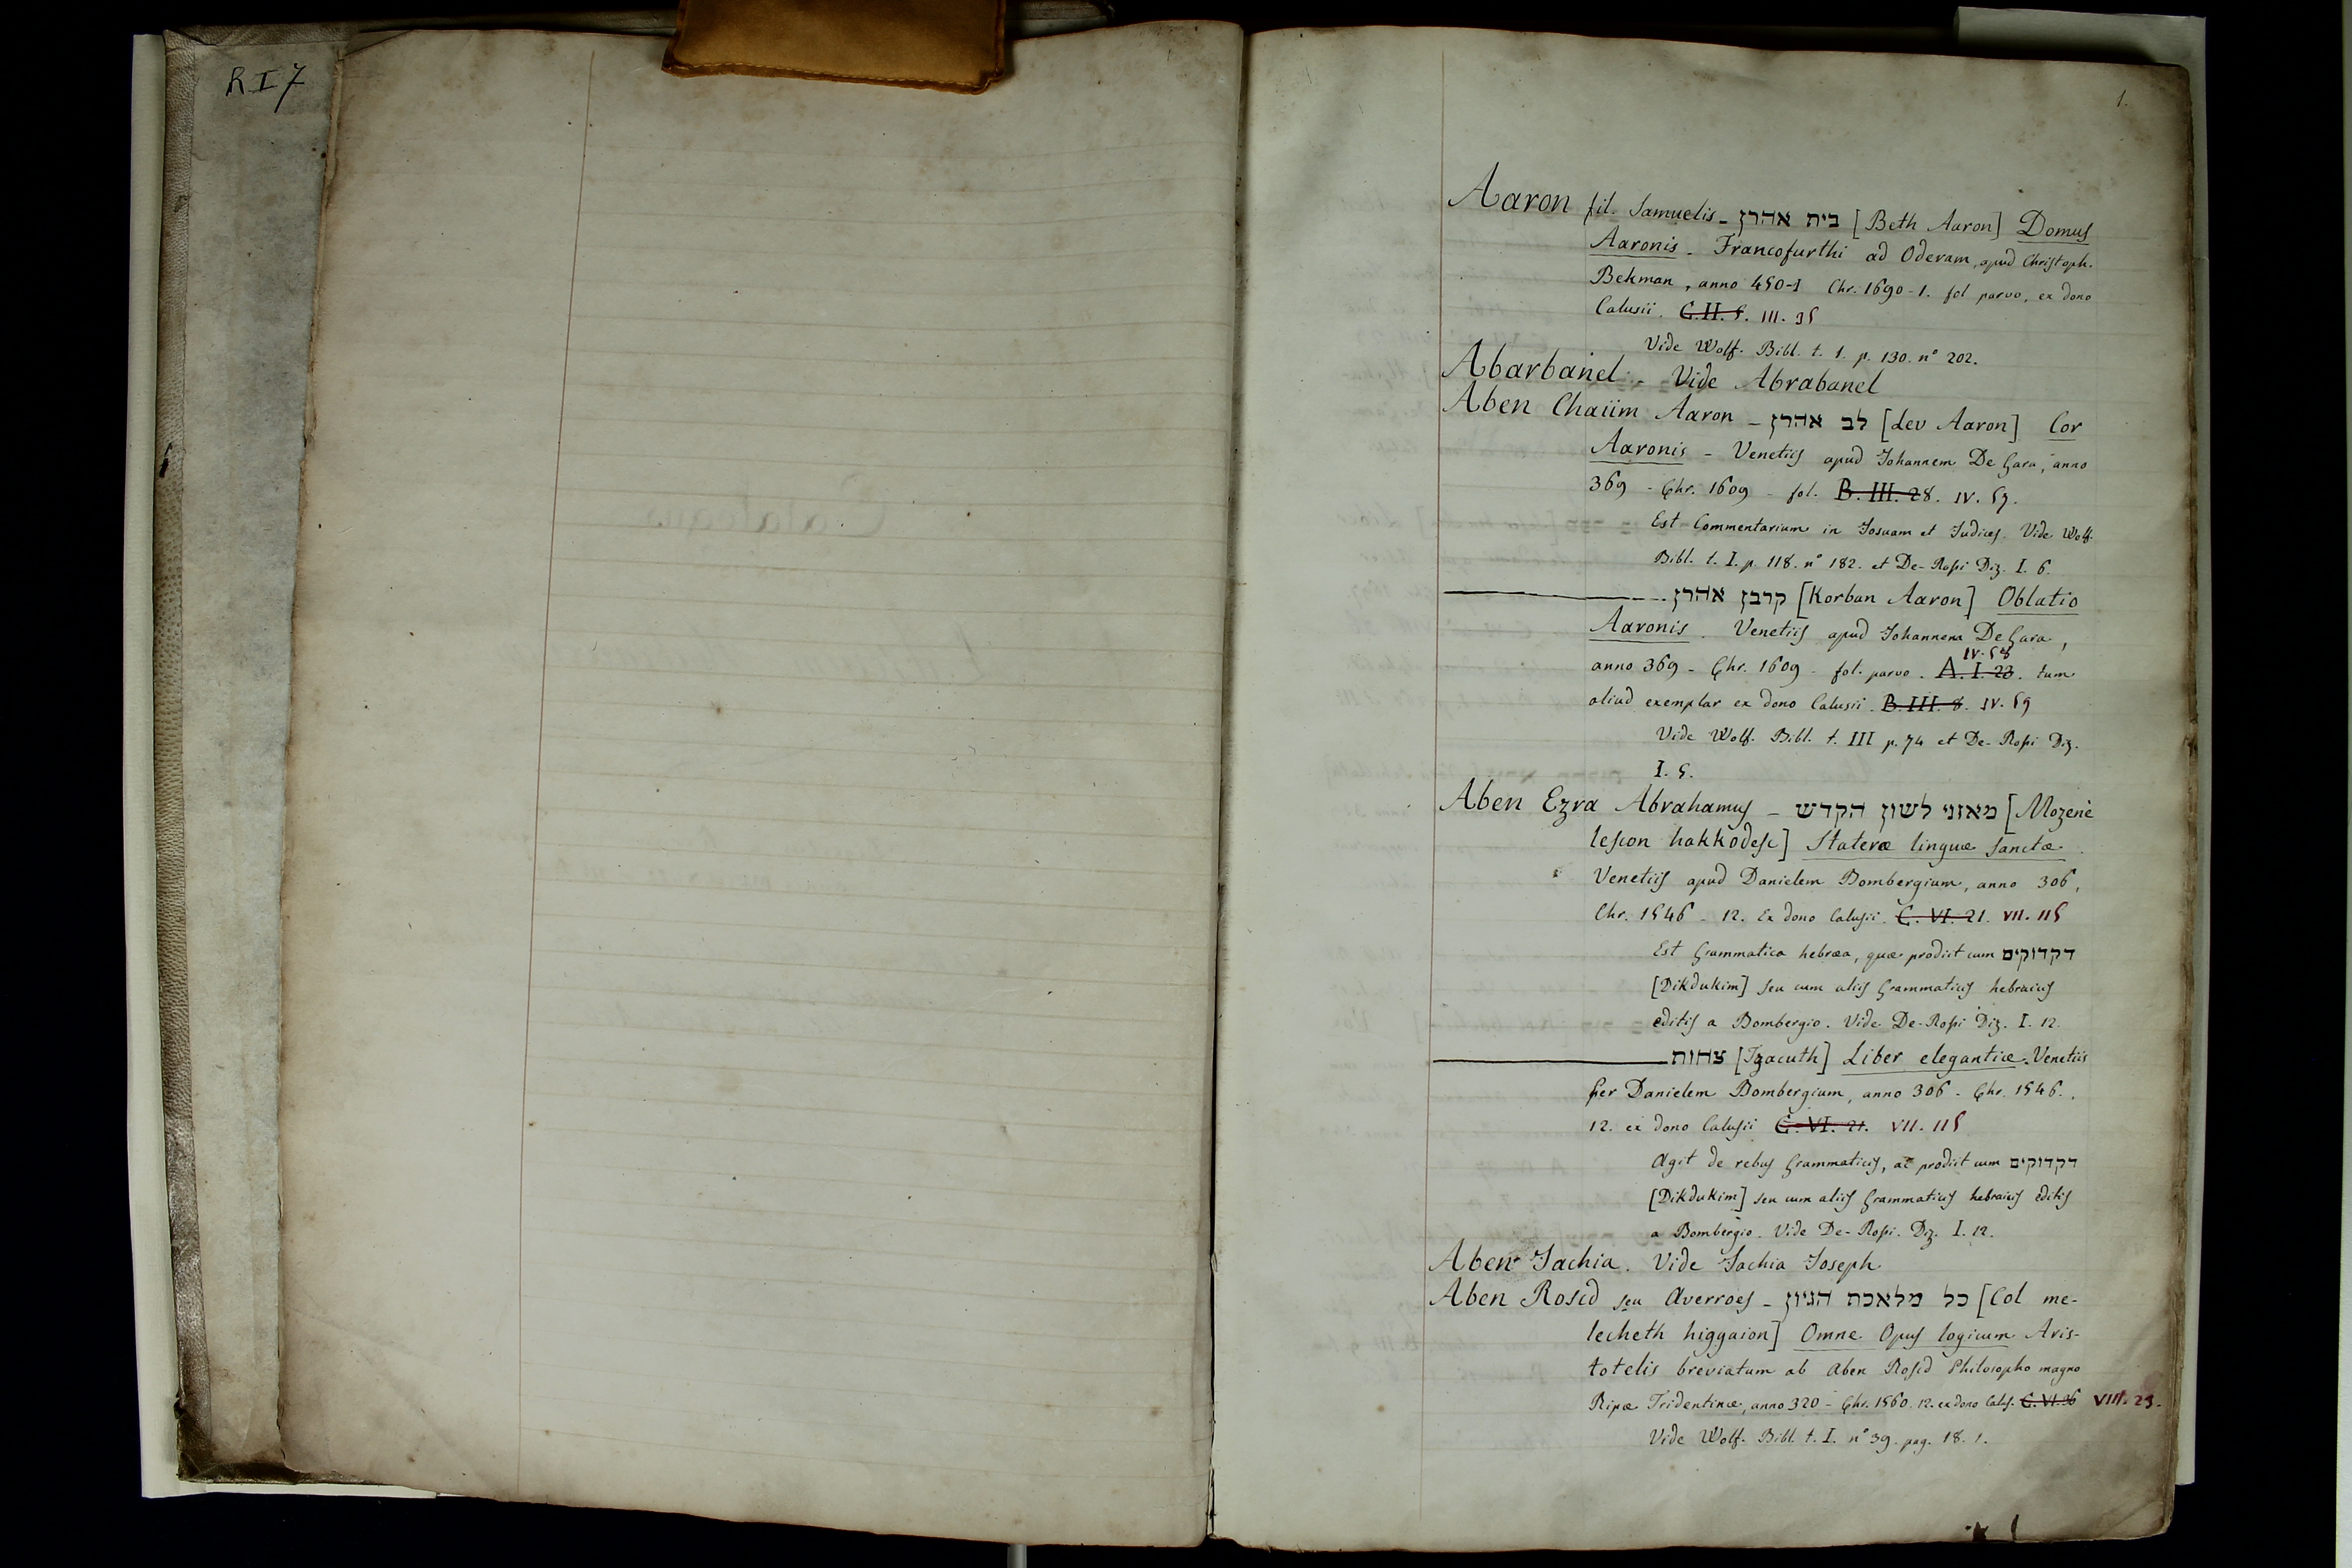 R I 7
1.
Aaron fil. Samuelis - בית אהרן [Beth Aaron] Domus
Aaronis - Francofurthi ad Oderam, apud Christoph.
Bekman, anno 450-1 Chr. 1690-1. fol parvo, ex dono
Calusii. C.II.5. III. 35
Vide Wolf. Bibl. t. 1. p. 130. n° 202.
Abarbanel - Vide Abrabanel
Aben Chaiim Aaron - לב אהרן [Lev Aaron] Cor
Aaronis - Venetiis apud Johannem De Gara, anno
369 - Chr. 1609 - fol. B. III. 28. IV. 57.
Est Commentarium in Josuam et Judices. Vide Wolf.
Bibl. t. I. p. 118. n° 182. et De-Rossi Diz. I. 6.
קרבן אהרן [Korban Aaron] Oblatio
Aaronis. Venetiis apud Johannem De Gara,
IV. 58
anno 369 - Chr. 1609 - fol. parvo. A. I. 23. tum
aliud exemplar ex dono Calusii. B. III. 8. IV. 59
Vide Wolf. Bibl. t. III p. 74 et De-Rossi Diz.
I. 5.
Aben Ezra Abrahamus - מאזני לשון הקדש [Mozenè
lescon hakkodesc] Stateræ linguæ sanctæ.
Venetiis apud Danielem Bombergium, anno 306,
Chr. 1546 - 12. Ex dono Calusii. C. VI. 21. VII. 115
Est Grammatica hebræa, quæ prodiit cum דקדוקים
[Dikdukim] seu cum aliis Grammaticis hebraicis
editis a Bombergio. Vide De-Rossi Diz. I. 12.
צחות [Tzacuth] Liber elegantiæ. Venetiis
per Danielem Bombergium, anno 306 - Chr. 1546.
12. ex dono Calusii C. VI. 21. VII. 115
Agit de rebus Grammaticis, ac prodiit cum דקדוקים
[Dikdukim] seu cum aliis Grammaticis hebraicis editis
a Bombergio. Vide De-Rossi. Diz. I. 12.
Aben Jachia. Vide Jachia Joseph
Aben Roscd seu Averroes - כל מלאכת הגיון [Col me-
lecheth higgaion] Omne Opus logicum Aris-
totelis breviatum ab Aben Roscd Philosopho magno
Ripæ Tridentinæ, anno 320 - Chr. 1560. 12. ex dono Calus. C. VI. 36 VIII. 23.
Vide Wolf. Bibl. t. I. n° 39. pag. 18. 1.